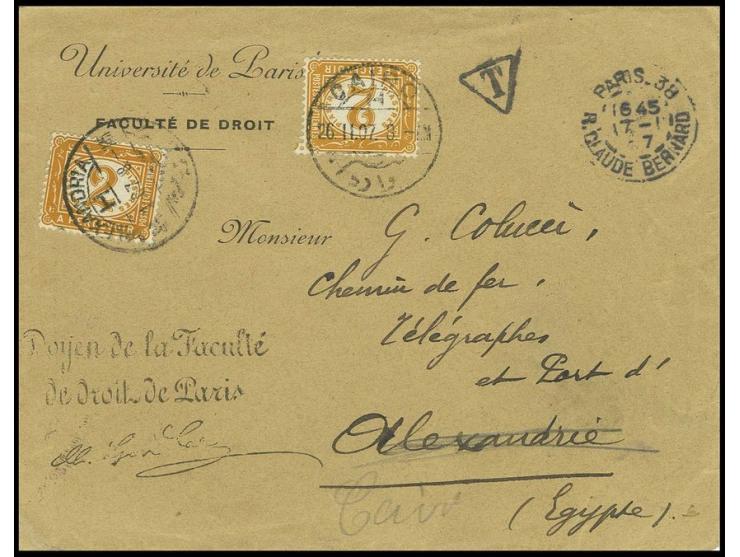 Université de Paris
FACULTÉ DE DROIT
T
PARIS.38
16 45
17-11
7
R. CLAUDE BERNARD
CAIRO
26.II.07. 8
2
2
ALEXANDRIA
Monsieur G. Colucci,
Chemin de fer,
Télégraphes
et Port d'
Alexandrie
Caire
(Egypte).
Doyen de la Faculté
de droit de Paris